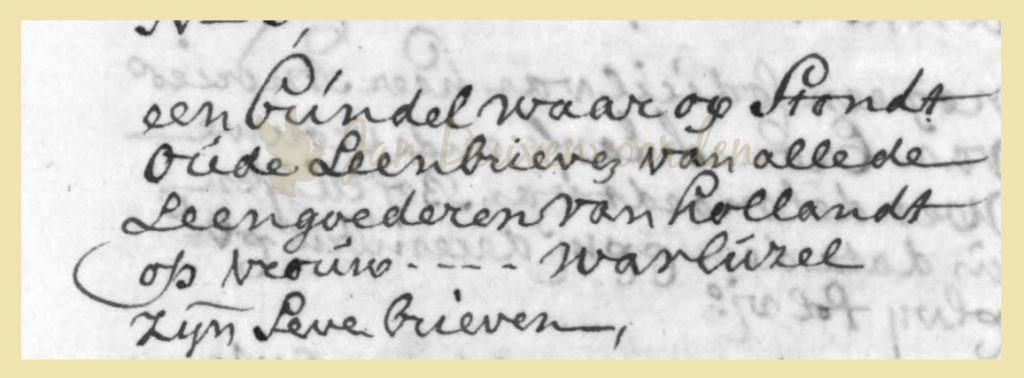 een bundel waar op stondt
Oude Leenbrieven van alle de
Leengoederen van hollandt
op vrouw - - - - warluzel
zijn Leve brieven,